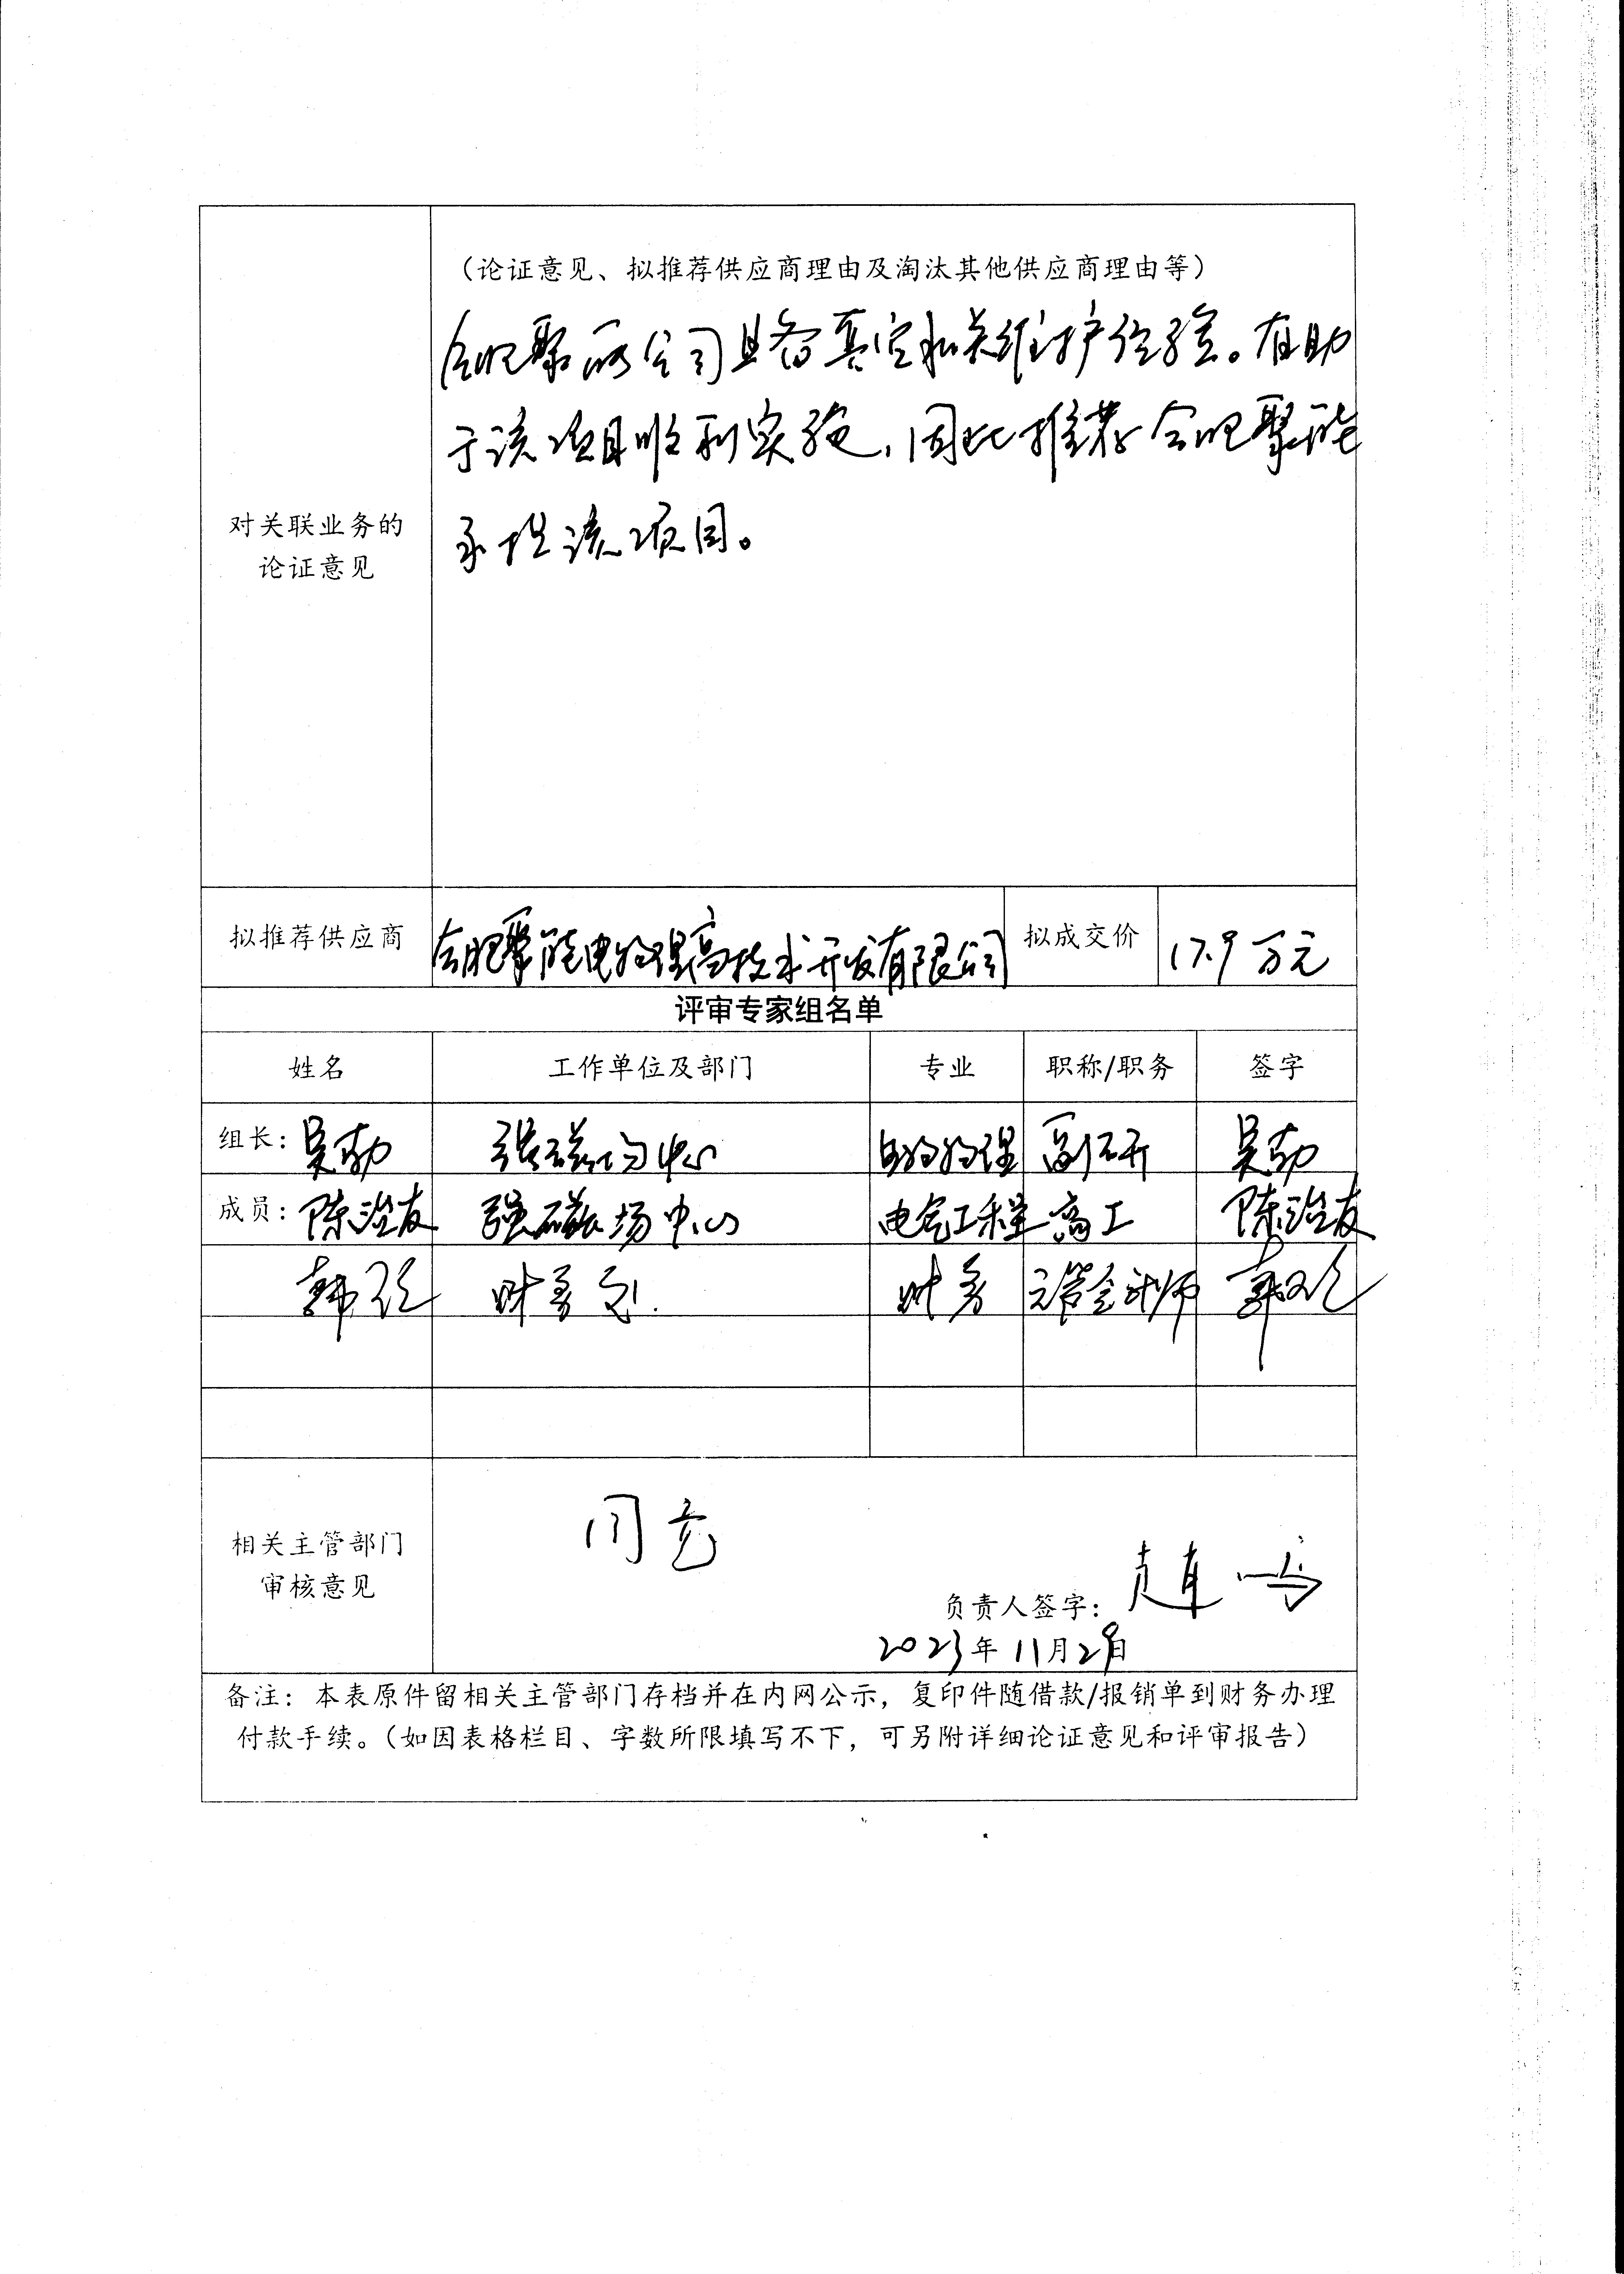 (论证意见、拟推荐供应商理由及淘汰其他供应商理由等)
合肥聚能公司具备真空相关维护经验。有助
于该项目顺利实施,因此推荐合肥聚能
承担该项目。
对关联业务的
论证意见
拟推荐供应商 合肥聚能电物理高技术开发有限公司 拟成交价 17.9万元
评审专家组名单
姓名 工作单位及部门 专业 职称/职务 签字
组长: 强磁场中心 物理 副研
成员:陈滢友 强磁场中心 电气工程 高工 陈滢友
韩 财务 财务 高管会计师
相关主管部门
审核意见
同意
负责人签字:
2023年11月29日
备注:本表原件留相关主管部门存档并在内网公示,复印件随借款/报销单到财务办理
付款手续。(如因表格栏目、字数所限填写不下,可另附详细论证意见和评审报告)